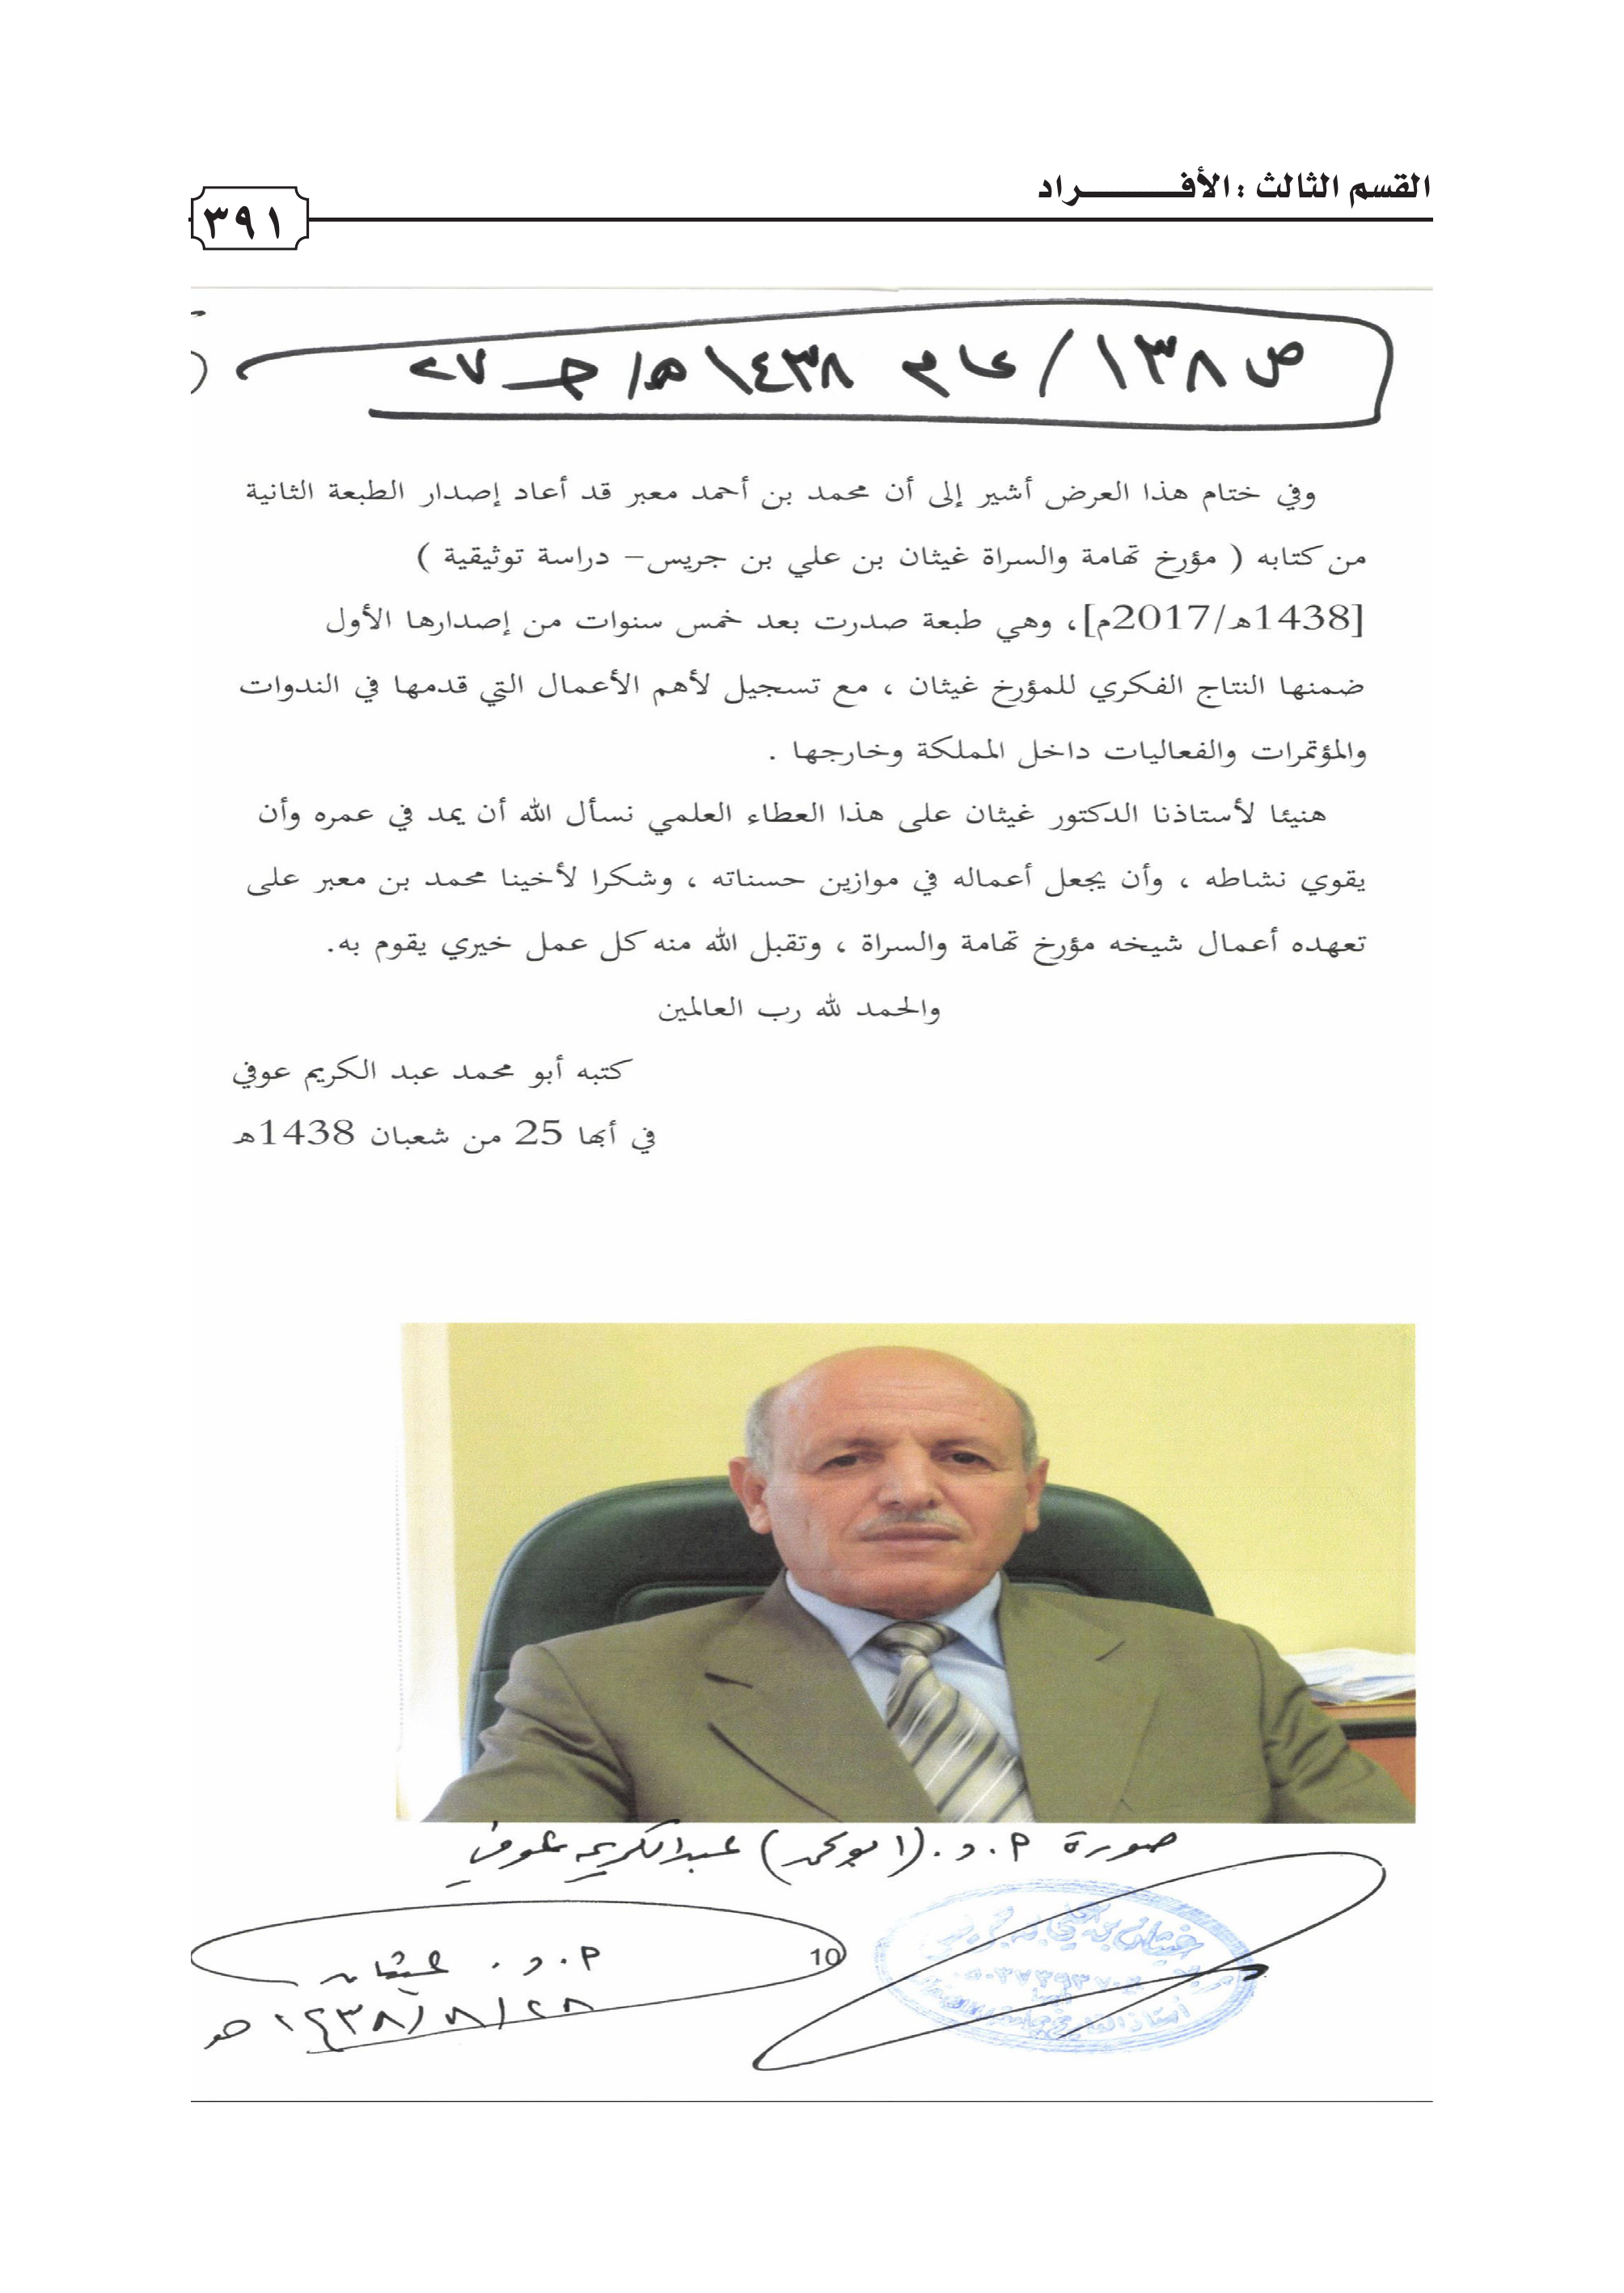 القسم الثالث : الأفـــــــــراد
٣٩١
ص ١٣٨ / عام ١٤٣٨هـ / جـ ٢٧
وفي ختام هذا العرض أشير إلى أن محمد بن أحمد معبر قد أعاد إصدار الطبعة الثانية
من كتابه ( مؤرخ تهامة والسراة غيثان بن علي بن جريس– دراسة توثيقية )
[1438هـ/2017م]، وهي طبعة صدرت بعد خمس سنوات من إصدارها الأول
ضمنها النتاج الفكري للمؤرخ غيثان ، مع تسجيل لأهم الأعمال التي قدمها في الندوات
والمؤتمرات والفعاليات داخل المملكة وخارجها .
هنيئا لأستاذنا الدكتور غيثان على هذا العطاء العلمي نسأل الله أن يمد في عمره وأن
يقوي نشاطه ، وأن يجعل أعماله في موازين حسناته ، وشكرا لأخينا محمد بن معبر على
تعهده أعمال شيخه مؤرخ تهامة والسراة ، وتقبل الله منه كل عمل خيري يقوم به.
والحمد لله رب العالمين
كتبه أبو محمد عبد الكريم عوفي
في أبها 25 من شعبان 1438هـ
صورة م.د.(ابومحمد) عبدالكريم عوفي
10
م.د. غيثان
٢٨/٨/١٤٣٨هـ
غيثان بن علي بن جريس